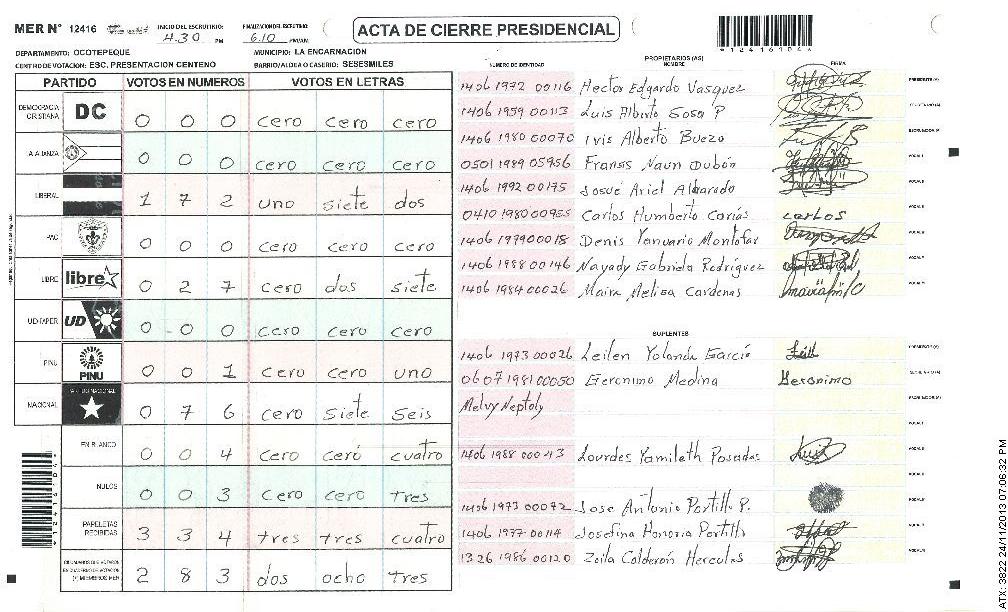 MER N° 12416
INICIO DEL ESCRUTINIO: 4.30 PM
FINALIZACION DEL ESCRUTINIO: 6.10 PM/AM.
ACTA DE CIERRE PRESIDENCIAL
DEPARTAMENTO: OCOTEPEQUE
MUNICIPIO: LA ENCARNACION
CENTRO DE VOTACION: ESC. PRESENTACION CENTENO
BARRIO/ALDEA O CASERIO: SESESMILES
PARTIDO VOTOS EN NUMEROS VOTOS EN LETRAS
DEMOCRACIA CRISTIANA DC 0 0 0 cero cero cero
ALIANZA 0 0 0 cero cero cero
LIBERAL 1 7 2 uno siete dos
PAC 0 0 0 cero cero cero
LIBRE libre 0 2 7 cero dos siete
UD-FAPER UD 0 - 0 0 cero cero cero
PINU PINU 0 0 1 cero cero uno
NACIONAL PARTIDO NACIONAL 0 7 6 cero siete seis
EN BLANCO 0 0 4 cero cero cuatro
NULOS 0 0 3 cero cero tres
PAPELETAS RECIBIDAS 3 3 4 tres tres cuatro
CIUDADANOS QUE VOTARON EN CUADERNO DE VOTACION (+) MIEMBROS MER 2 8 3 dos ocho tres
PROPIETARIOS (AS)
NUMERO DE IDENTIDAD NOMBRE FIRMA
1406 1972 00116 Hector Edgardo Vasquez PRESIDENTE (A)
1406 1959 00113 Luis Alberto Sosa P SECRETARIO (A)
1406 1980 00070 Ivis Alberto Buezo ESCRUTADOR (A)
0501 1989 05956 Fransis Naun Dubón VOCAL I
1406 1992 00175 Josué Ariel Alvarado
0410 1980 00985 Carlos Humberto Carias carlos
1406 1979 00018 Denis Yanuario Montofar
1406 1988 00146 Nayady Gabriela Rodriguez
1406 1984 00026 Maira Melisa Cardenas
SUPLENTES
1406 1973 00026 Leilen Yolanda Garcia PRESIDENTE (A)
0607 1981 00050 Geronimo Medina Geronimo SECRETARIO (A)
Melvy Neptoly ESCRUTADOR (A)
1406 1988 00043 Lourdes Yamileth Posadas
1406 1973 00072 Jose Antonio Portillo P.
1406 1977 00114 Josefina Honoria Portillo
1326 1986 00120 Zoila Calderón Hercules
ATX: 3822 24/11/2013 07:06:32 PM